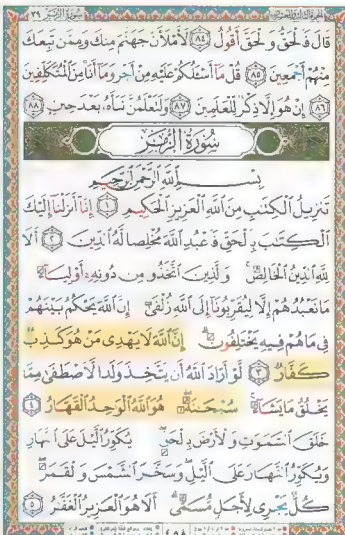 سُورَةُ الزُّمَر ٣٩
قَالَ فَٱلْحَقُّ وَٱلْحَقَّ أَقُولُ ٨٤ لَأَمْلَأَنَّ جَهَنَّمَ مِنكَ وَمِمَّن تَبِعَكَ
مِنْهُمْ أَجْمَعِينَ ٨٥ قُلْ مَآ أَسْـَٔلُكُمْ عَلَيْهِ مِنْ أَجْرٍ وَمَآ أَنَا۠ مِنَ ٱلْمُتَكَلِّفِينَ
٨٦ إِنْ هُوَ إِلَّا ذِكْرٌ لِّلْعَـٰلَمِينَ ٨٧ وَلَتَعْلَمُنَّ نَبَأَهُۥ بَعْدَ حِينٍۭ ٨٨
سُورَةُ الزُّمَرِ
بِسْمِ ٱللَّهِ ٱلرَّحْمَـٰنِ ٱلرَّحِيمِ
تَنزِيلُ ٱلْكِتَـٰبِ مِنَ ٱللَّهِ ٱلْعَزِيزِ ٱلْحَكِيمِ ١ إِنَّآ أَنزَلْنَآ إِلَيْكَ
ٱلْكِتَـٰبَ بِٱلْحَقِّ فَٱعْبُدِ ٱللَّهَ مُخْلِصًا لَّهُ ٱلدِّينَ ٢ أَلَا
لِلَّهِ ٱلدِّينُ ٱلْخَالِصُ ۚ وَٱلَّذِينَ ٱتَّخَذُوا۟ مِن دُونِهِۦٓ أَوْلِيَآءَ
مَا نَعْبُدُهُمْ إِلَّا لِيُقَرِّبُونَآ إِلَى ٱللَّهِ زُلْفَىٰٓ إِنَّ ٱللَّهَ يَحْكُمُ بَيْنَهُمْ
فِى مَا هُمْ فِيهِ يَخْتَلِفُونَ ۗ إِنَّ ٱللَّهَ لَا يَهْدِى مَنْ هُوَ كَـٰذِبٌ
كَفَّارٌ ٣ لَّوْ أَرَادَ ٱللَّهُ أَن يَتَّخِذَ وَلَدًا لَّٱصْطَفَىٰ مِمَّا
يَخْلُقُ مَا يَشَآءُ ۚ سُبْحَـٰنَهُۥ ۖ هُوَ ٱللَّهُ ٱلْوَٰحِدُ ٱلْقَهَّارُ ٤
خَلَقَ ٱلسَّمَـٰوَٰتِ وَٱلْأَرْضَ بِٱلْحَقِّ ۖ يُكَوِّرُ ٱلَّيْلَ عَلَى ٱلنَّهَارِ
وَيُكَوِّرُ ٱلنَّهَارَ عَلَى ٱلَّيْلِ ۖ وَسَخَّرَ ٱلشَّمْسَ وَٱلْقَمَرَ ۖ
كُلٌّ يَجْرِى لِأَجَلٍ مُّسَمًّى ۗ أَلَا هُوَ ٱلْعَزِيزُ ٱلْغَفَّـٰرُ ٥
٤٥٨